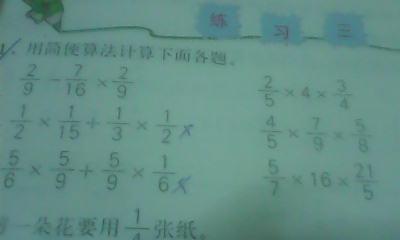 练 习 三
1、用简便算法计算下面各题。
2/9 - 7/16 × 2/9    2/5 × 4 × 3/4
1/2 × 1/15 + 1/3 × 1/2 ×    4/5 × 7/9 × 5/8
5/6 × 5/9 + 5/9 × 1/6 ×    5/7 × 16 × 21/5
一朵花要用1/4张纸。